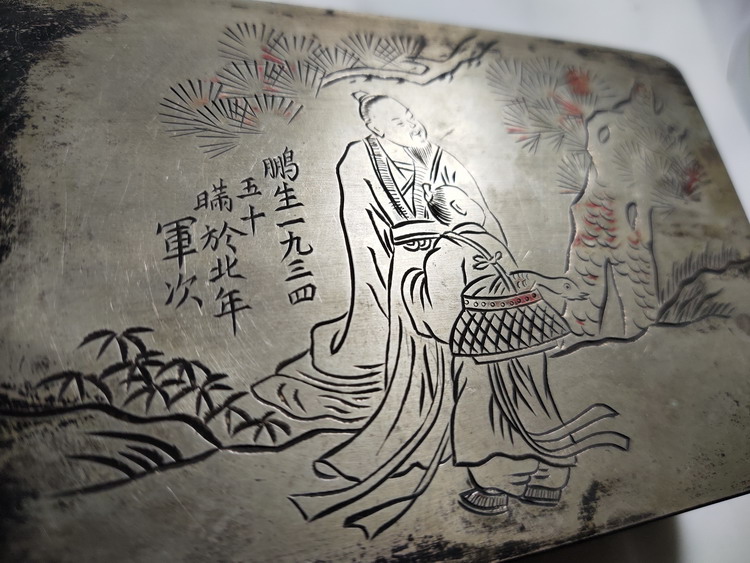 鹏生一九三四
五十
暪於北年
軍次